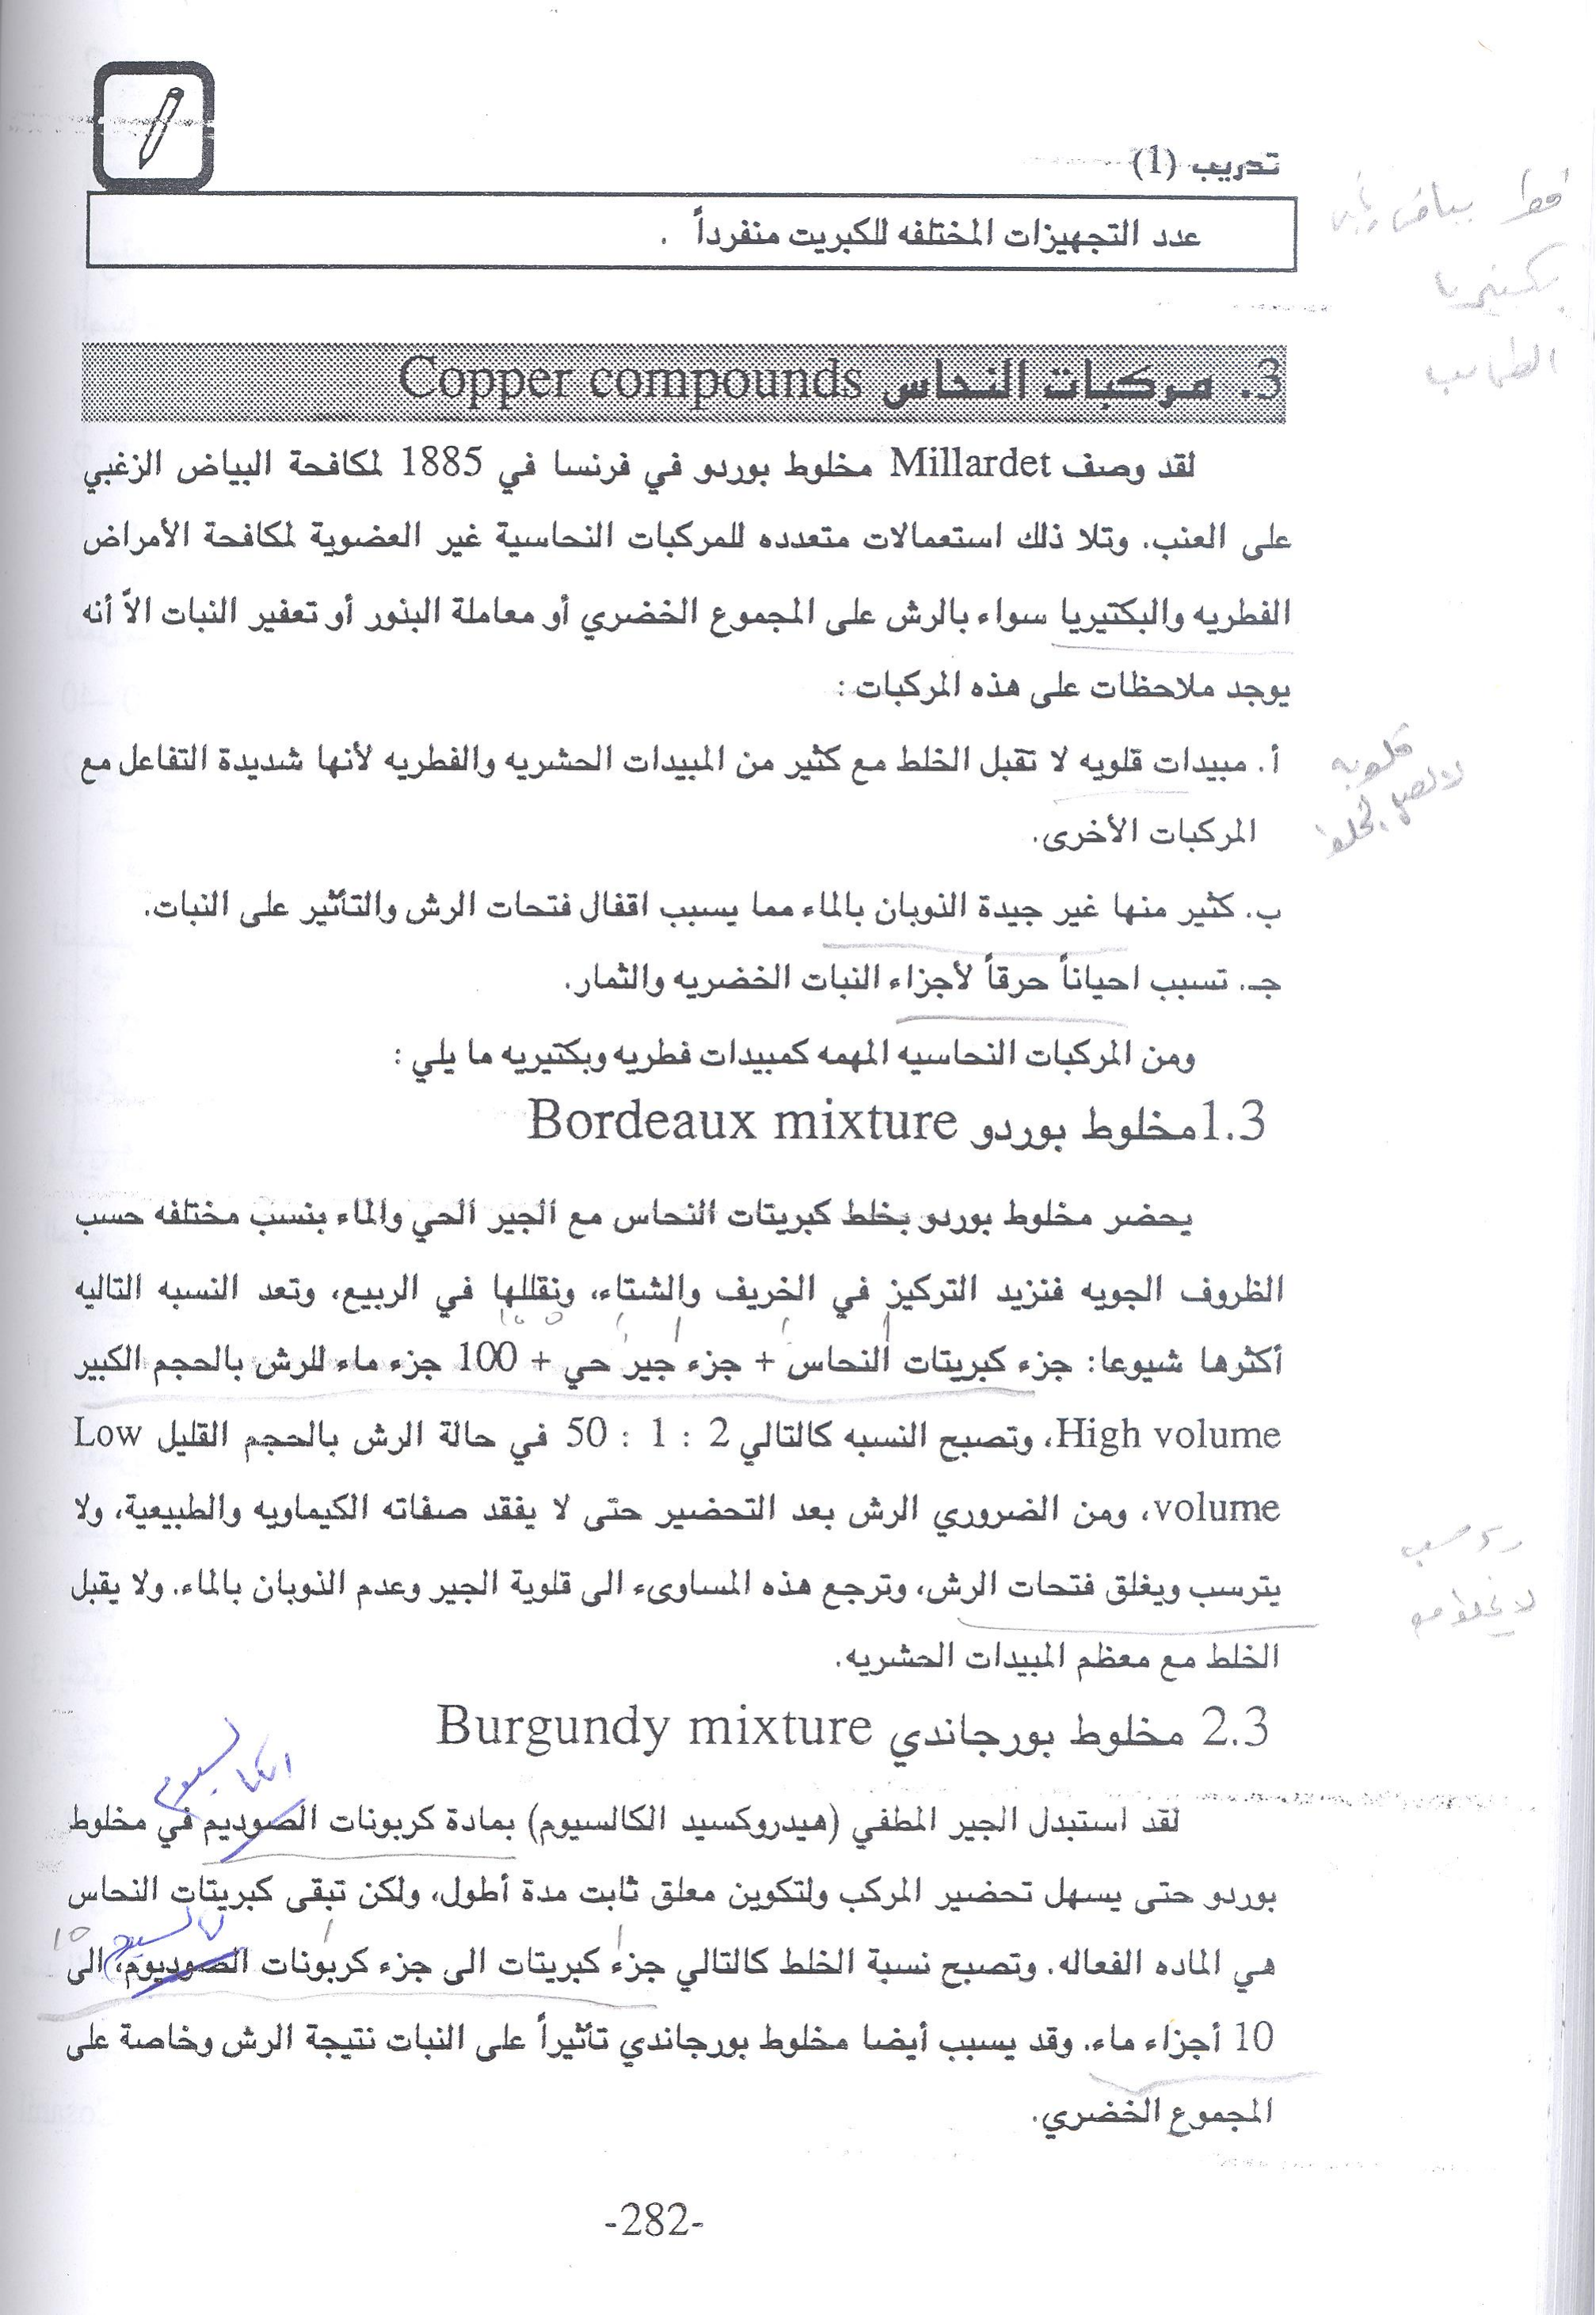 تدريب (1)
عدد التجهيزات المختلفه للكبريت منفرداً .
3. مركبات النحاس Copper compounds
لقد وصف Millardet مخلوط بوردو في فرنسا في 1885 لمكافحة البياض الزغبي
على العنب. وتلا ذلك استعمالات متعدده للمركبات النحاسية غير العضوية لمكافحة الأمراض
الفطريه والبكتيريا سواء بالرش على المجموع الخضري أو معاملة البذور أو تعفير النبات الاّ أنه
يوجد ملاحظات على هذه المركبات :
أ. مبيدات قلويه لا تقبل الخلط مع كثير من المبيدات الحشريه والفطريه لأنها شديدة التفاعل مع
المركبات الأخرى.
قلويه
ب. كثير منها غير جيدة الذوبان بالماء مما يسبب اقفال فتحات الرش والتأثير على النبات.
جـ. تسبب احياناً حرقاً لأجزاء النبات الخضريه والثمار.
ومن المركبات النحاسيه المهمه كمبيدات فطريه وبكتيريه ما يلي :
1.3مخلوط بوردو Bordeaux mixture
يحضر مخلوط بوردو بخلط كبريتات النحاس مع الجير الحي والماء بنسب مختلفه حسب
الظروف الجويه فنزيد التركيز في الخريف والشتاء، ونقللها في الربيع، وتعد النسبه التاليه
أكثرها شيوعا: جزء كبريتات النحاس + جزء جير حي + 100 جزء ماء للرش بالحجم الكبير
High volume، وتصبح النسبه كالتالي 2 : 1 : 50 في حالة الرش بالحجم القليل Low
volume، ومن الضروري الرش بعد التحضير حتى لا يفقد صفاته الكيماويه والطبيعية، ولا
يترسب ويغلق فتحات الرش، وترجع هذه المساوىء الى قلوية الجير وعدم الذوبان بالماء. ولا يقبل
الخلط مع معظم المبيدات الحشريه.
2.3 مخلوط بورجاندي Burgundy mixture
الكالسيوم
لقد استبدل الجير المطفي (هيدروكسيد الكالسيوم) بمادة كربونات الصوديم في مخلوط
بوردو حتى يسهل تحضير المركب ولتكوين معلق ثابت مدة أطول، ولكن تبقى كبريتات النحاس
هي الماده الفعاله. وتصبح نسبة الخلط كالتالي جزء كبريتات الى جزء كربونات الصوديوم، الى
10 أجزاء ماء. وقد يسبب أيضا مخلوط بورجاندي تأثيراً على النبات نتيجة الرش وخاصة على
المجموع الخضري.
-282-